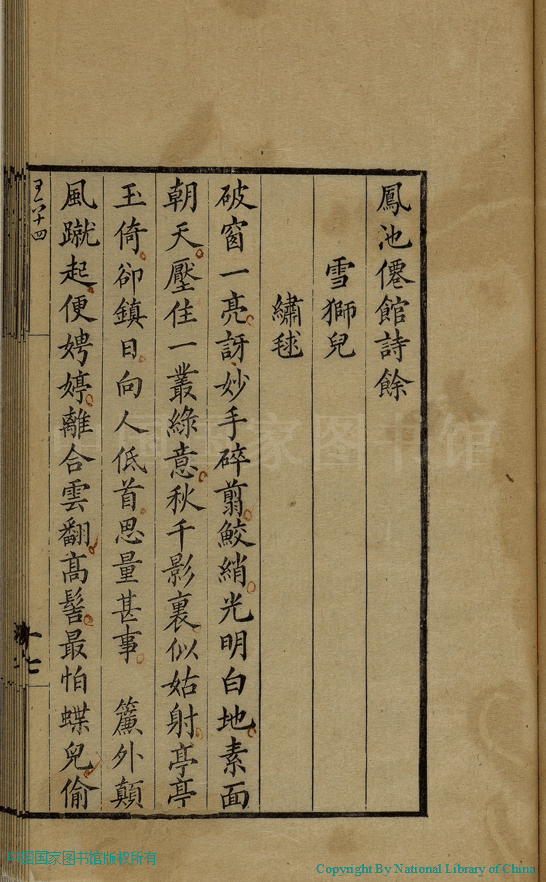 鳳池僊館詩餘
雪獅兒
繡毬
破窗一亮訝妙手碎翦鮫綃光明白地素面
朝天壓住一叢綠意秋千影裏似姑射亭亭
玉倚卻鎮日向人低首思量甚事 簾外顛
風蹴起便娉婷離合雲翻高髻最怕蝶兒偷
中国国家图书馆
中国国家图书馆版权所有
Copyright By National Library of China